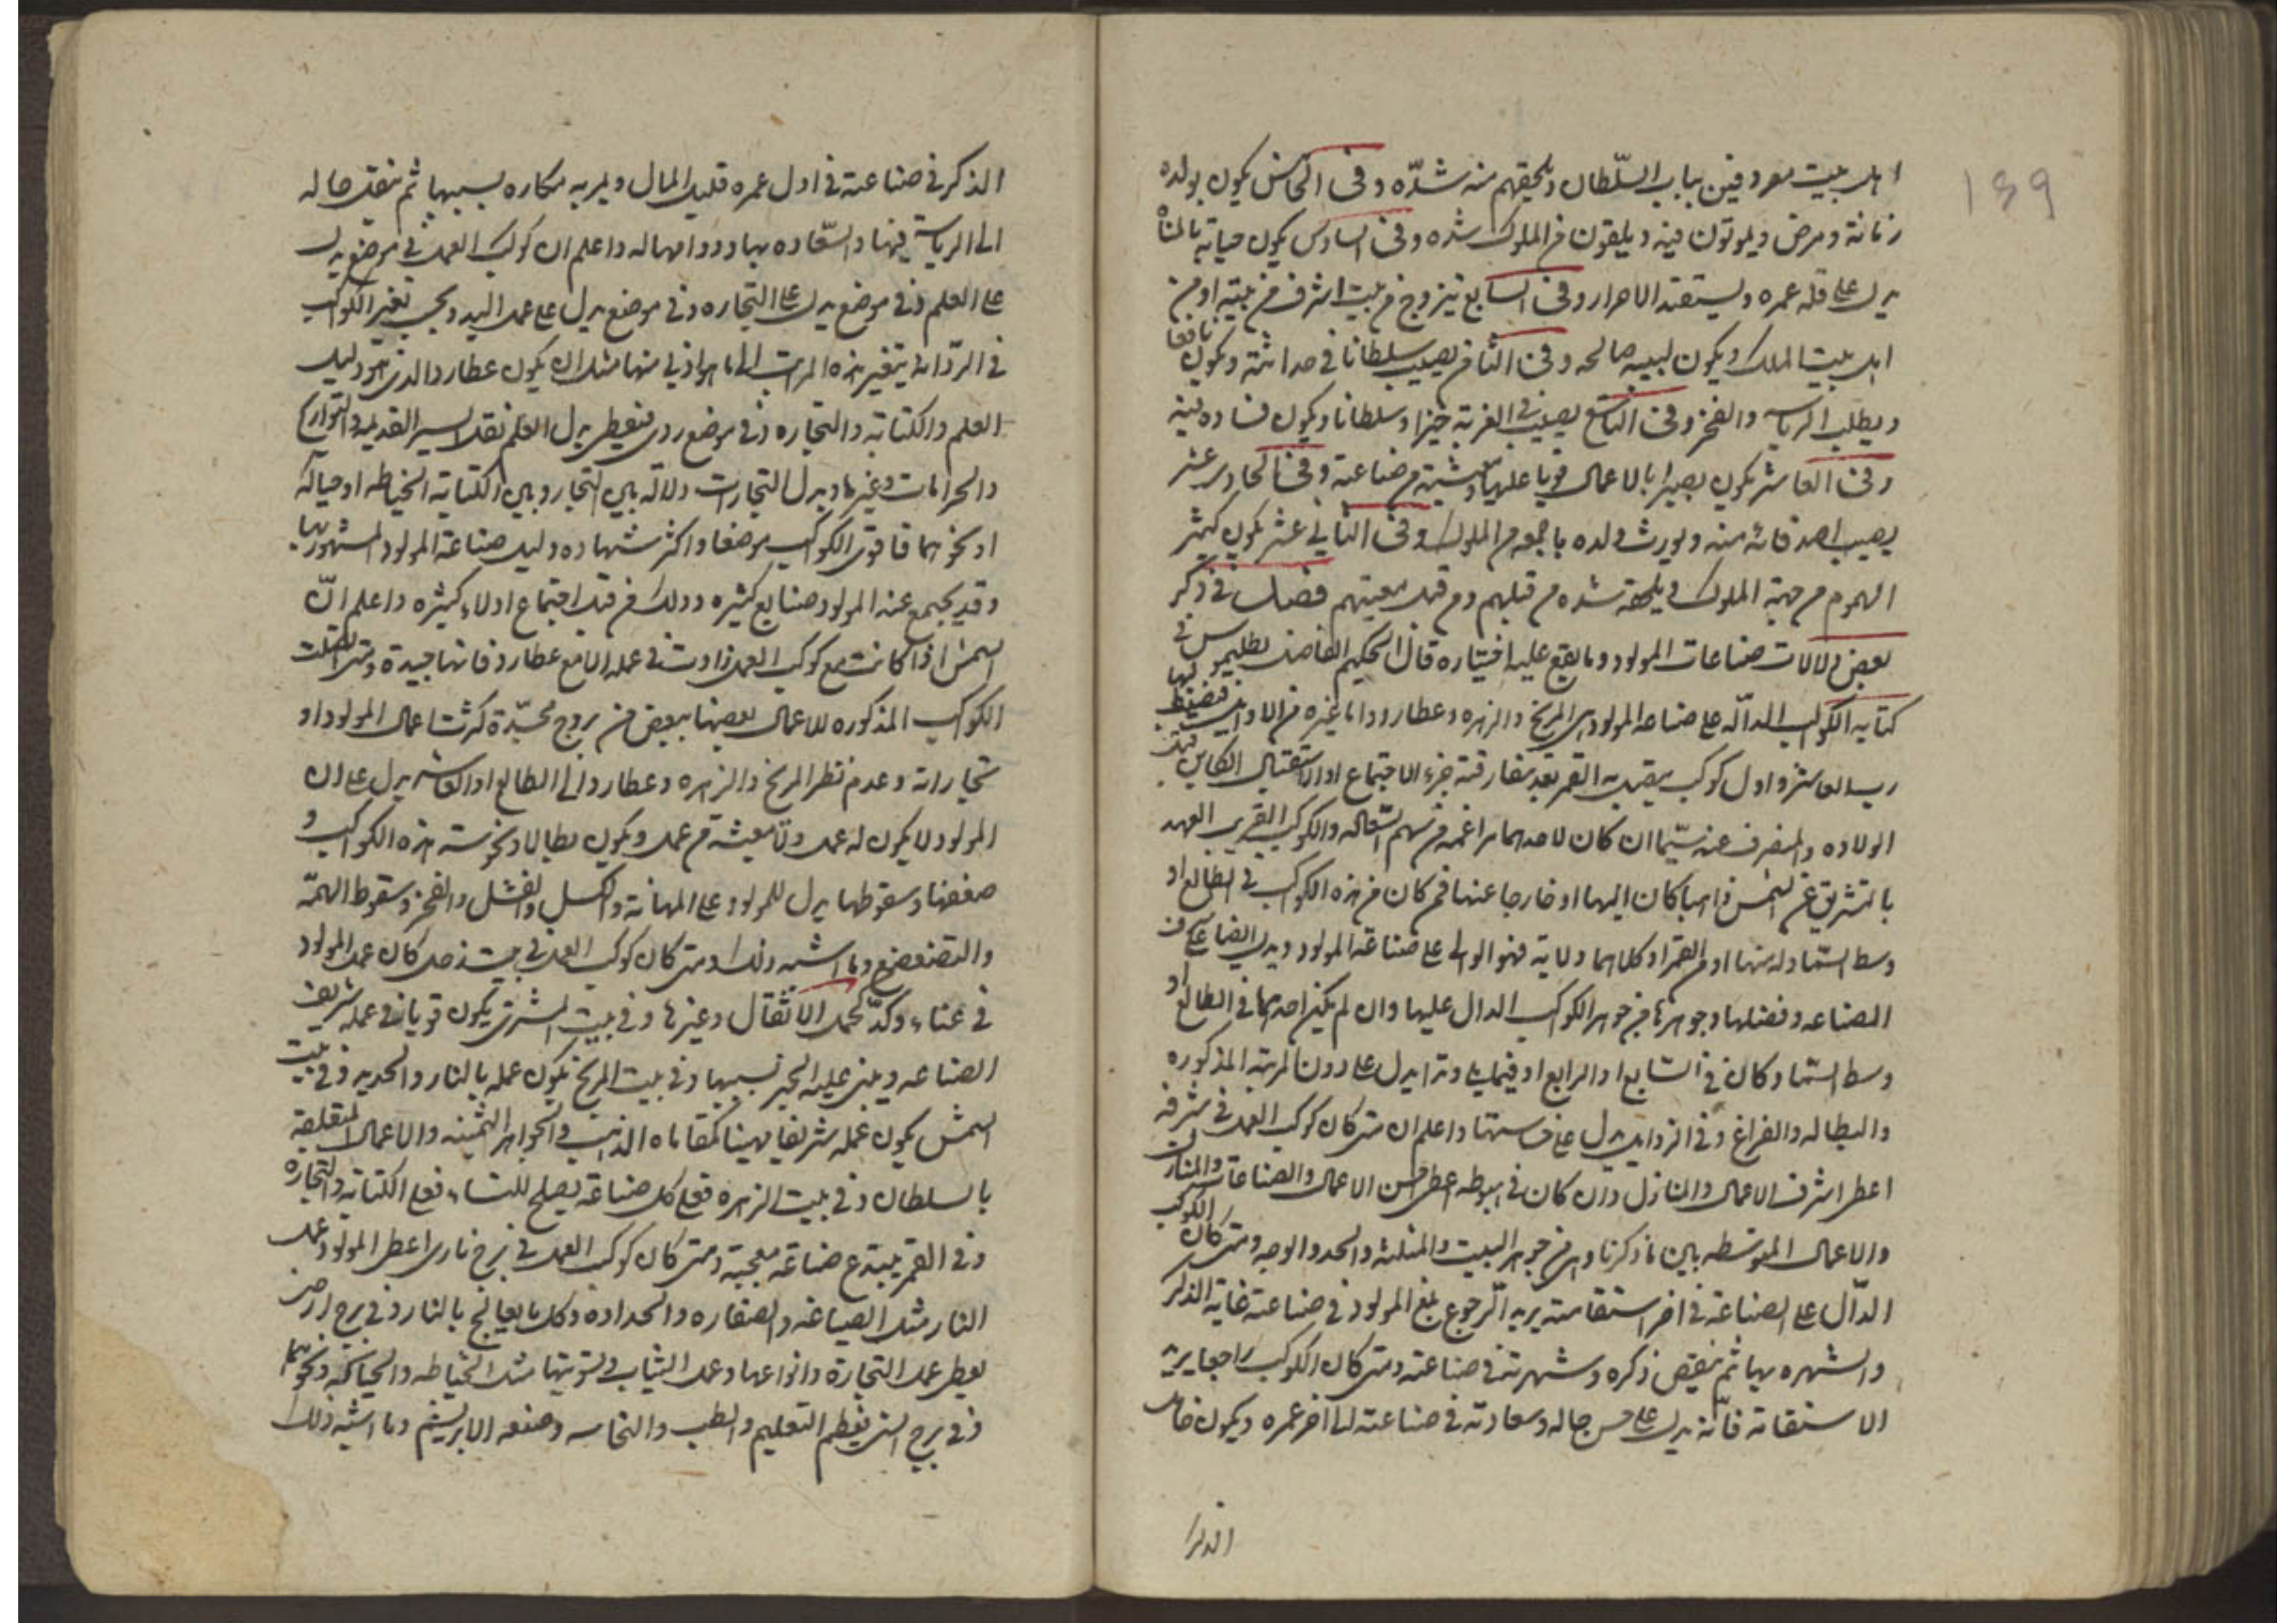 139
اهل بيت معروفين بباب السّلطان ويلحقهم منه شدّه وفى الخامس يكون بولده
زمانة ومرض ويموتون فيه ويلقون من الملوك شده وفى السادس يكون حياته
يدل على قله عمره ويستعبد الاحرار وفى السابع يتزوج من بيت اشرف من بيته او من
اهل بيت الملك ويكون لبيبه صالحه وفى الثامن يصيب سلطانا فى حداثته ويكون نافعا
ويطلب الرياسه والفخر وفى التاسع يصيب فى الغربة خيرا وسلطانا ويكون فساد دينه
وفى العاشر يكون بصيرا بالاعمال قويا عليها ومعيشته من صناعته وفى الحادى عشر
يصيب اصدقائه منه ويورث ولده ما جمعه من الملوك وفى الثانى عشر يكون كثير
الهموم من جهة الملوك ويلحقه شده من قبلهم ومن قبل معيتهم فصل فى ذكر
بعض دلالات صناعات المولود وما يقع عليه اختياره قال الحكيم الفاضل بطليموس فى
كتابه الكواكب الدالّه على صناعه المولود هى المريخ والزهره وعطارد واما غيره من
رب العاشر واول كوكب يتصل به القمر بعد مفارقته جزء الاجتماع او الاستقبال الكاين قبل
الولاده والمنصرف عنه سيّما ان كان لاحدهما مزاعمه من سهم السّعاده والكوكب القريب العهد
بالتشريق عن الشمس ذاهبا كان اليها او خارجا عنها فمن كان من هذه الكواكب فى الطالع او
وسط السّماء وله منها او من القمر او كلاهما ولاية فهو الوالى على صناعة المولود ويدل ايضا على
الصناعه وفضلها وجوهرها من جوهر الكواكب الدال عليها وان لم يكن احدهما فى الطالع او
وسط السّماء وكان فى السّابع او الرابع او فيما يلى وتدا يدل على دون المرتبه المذكوره
والبطاله والفراغ وفى الزوايل يدل على خسّتها واعلم ان متى كان كوكب العمل فى شرفه
اعطى اشرف الاعمال والمنازل وان كان فى هبوطه اعطى اخسّ الاعمال والصناعات والمنازل
والاعمال المتوسّطه بين ما ذكرنا وهى من جوهر البيت والمثلثه والحد والوجه ومتى كان الكوكب
الدّال على الصناعة فى اخر استقامته يريد الرّجوع بلغ المولود فى صناعته غاية الذكر
والشهره بها ثم ينقص ذكره وشهرته فى صناعته ومتى كان الكوكب راجعا يريد
الاستقامة فانّه يدل على حسن حاله وسعادته فى صناعته الى اخر عمره ويكون خامل
الذكر
الذكر فى صناعته فى اول عمره قليل المال ويمر به مكاره بسببها ثم ينتقل حاله
الى الرياسة فيها والسّعاده بها ودوامها له واعلم ان كوكب العمل فى موضع يدل
على العلم وفى موضع يدل على التجاره وفى موضع يدل على عمل اليد وبحسب تغير الكواكب
فى الرّداءة يتغير هذه المراتب الى ما هو ادنى منها مثل ان يكون عطارد الذى هو دليل
العلم والكتابة والتجاره فى موضع ردى فيعطى بدل العلم نقل السير القديمه والتواريخ
والخرافات وغيرها وبدل التجارات دلالة بين التجار وبدل الكتابة الخياطه او حياكه
او نحوهما فاقوى الكواكب موضعا واكثر شهاده دليل صناعة المولود المشهور بها
وقد يجتمع عند المولود صنايع كثيره وذلك من قبل اجتماع ادلاء كثيره واعلم انّ
الشمس اذا كانت مع كوكب العمل زادت فى عمله الا مع عطارد فانها جيدة ومتى اتصلت
الكواكب المذكوره للاعمال بعضها ببعض من بروج مجسّدة كثرت اعمال المولود او
تجاراته وعدم نظر المريخ والزهره وعطارد الى الطالع او العاشر يدل على ان
المولود لا يكون له عمل ولا معيشة من عمل ويكون بطالا ونحوسة هذه الكواكب و
ضعفها وسقوطها يدل للمولود على المهانة والكسل والفشل والعجز وسقوط الهمّة
والتضعضع وما اشبه ذلك ومتى كان كوكب العمل فى بيت زحل كان عمل المولود
فى عناء وكدّ كحمل الاثقال وغيرها وفى بيت المشترى يكون قويا فى عمله شريف
الصناعه ويبنى عليه الخير بسببها وفى بيت المريخ يكون عمله بالنار والحديد وفى بيت
الشمس يكون عمله شريفا بهيا كمقاماه الذهب والجواهر الثمينه والاعمال المتعلقه
بالسلطان وفى بيت الزهره فعلى كل صناعة يصلح للنساء فعلى الكتابة والتجاره
وفى القمر يبتدع صناعة معجبة ومتى كان كوكب العمل فى برج نارى اعطى المولود عمل
النار مثل الصياغه والصفاره والحداده وكل ما يعالج بالنار وفى برج ارضى
يعطى عمل التجارة وانواعها وعمل الثياب وتسويتها مثل الخياطه والحياكه ونحوهما
وفى برج انسى يعطى التعليم والطب والنخاسه وصنعه الابريسم وما اشبه ذلك